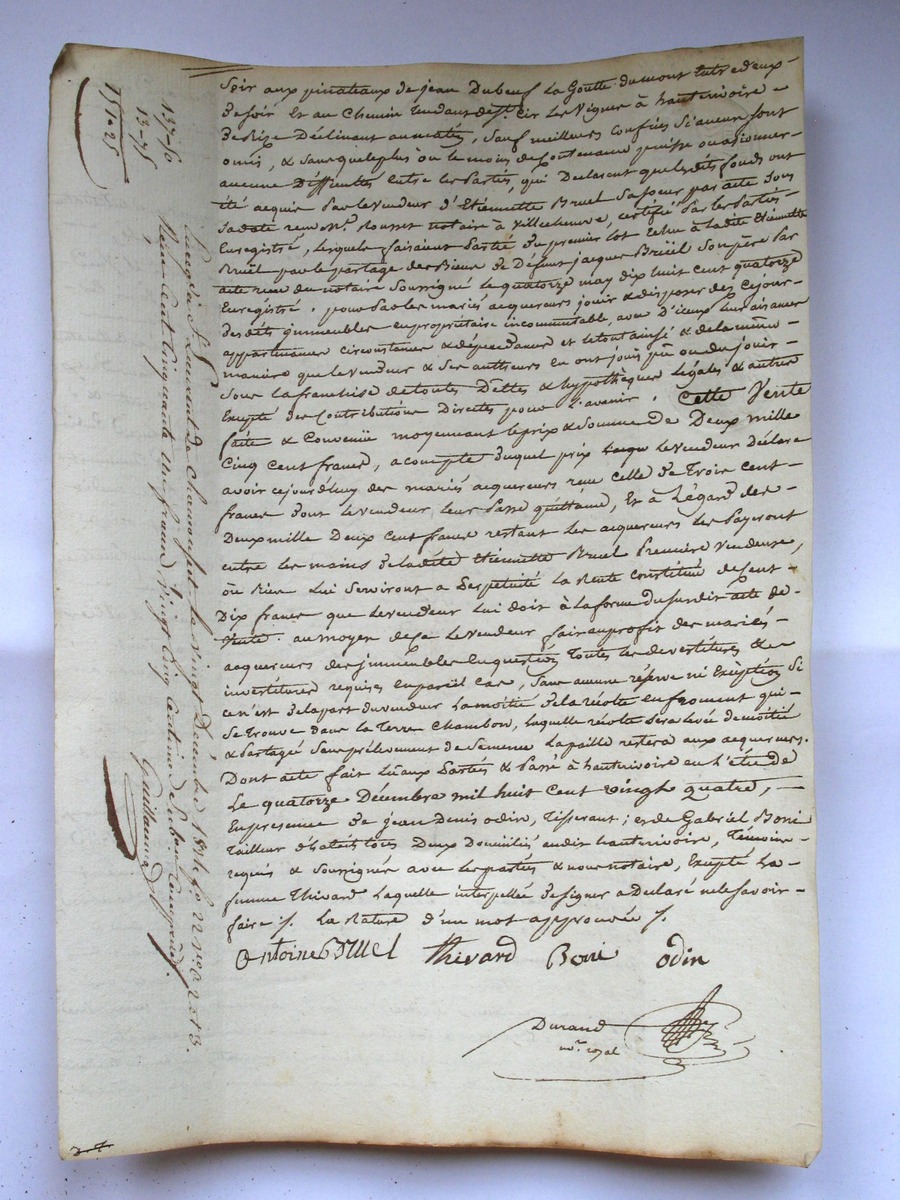 Soir aux pinateaux de jean Dubeuf La Goutte du mont entre deux
de soir et au Chemin tendant de St. Cir les Vignes à hauterivoire
de Bize Déclinant au matin, Sauf meilleures confins si aucuns sont
omis, & sans que le plus ou le moins de Contenance puisse occasionner
aucune Difficultés entre les Parties, qui Declarent que lesdits fonds ont
été acquis Par le vendeur d'Etiennette Bruel sa soeur par acte sous
sa date reçu Me. Rousset notaire à Villechenève, certifié Par les Parties
Enregistré, lesquels faisaient Partie du premier lot échu à ladite Etiennette
Bruël par le partage des Biens de Défunt jacques Bruël son père Par
acte reçu du notaire Soussigné le quatorze may dix huit cent quatorze
Enregistré. pour Par les mariés acquereurs jouir & disposer dès cejour
desdits immeubles en propriétaire incommutable, avec d'iceux leurs aisances
appartenances circonstances & dépendances et le tout ainsi & de la même
manière que le vendeur & ses autheurs en ont joui pu ou du jouir
Sous la franchise de toutes Dettes & hypothèques Légales & autres
Excepté des Contributions Directes pour l'avenir. Cette Vente
faite & Convenüe moyennant le prix & Somme de Deux mille
Cinq Cent francs, a compte duquel prix le vendeur déclare
avoir cejourd'huy des mariés acquereurs reçu celle de Trois Cent
francs dont le vendeur leur Passe quittance, Et à L'égard des
Deux mille Deux Cent francs restant les acquereurs les Payeront
entre les mains de ladite Etiennette Bruël Première Vendeuse,
où Bien Lui Serviront a Perpétuité La Rente Constituée de Cent
Dix francs que le vendeur Lui doit à la forme du susdit acte de
Vente. au moyen de ce le vendeur fait au profit des mariés
acquereurs des immeubles en question Toutes les devestitures &
investitures requises en pareil Cas, Sans aucune réserve ni Exception Si
ce n'est de la part du vendeur La moitié de la récolte en froment qui
Se trouve dans la Terre Chambon, laquelle récolte sera levée de moitié
& Partagé Sans prélèvement de Semence La paille restera aux acquereurs.
Dont acte fait Lu aux Parties & Passé à hauterivoire en l'étude
Le quatorze Décembre mil huit cent vingt quatre,
En presence de jean Denis odin, Tisserant; et de Gabriel Boni
Tailleur d'habits tous Deux Domiciliés audit hauterivoire, Témoins
requis & Soussignés avec les parties & nous notaire, Excepté La
femme Thivard Laquelle interpellée de signer a Declaré ne le savoir
faire /. La Rature d'un mot approuvée /.
Antoine Bruel Thivard Boni odin
Durand
nore. royal
137-50
13-75
151-25
Enregistré à St. Laurent de Chamousset le vingt Décembre 1824 fo 22 no 2 et 3.
Reçu Cent Cinquante un francs vingt cinq Centimes Subvention Comprise.
Guillaume